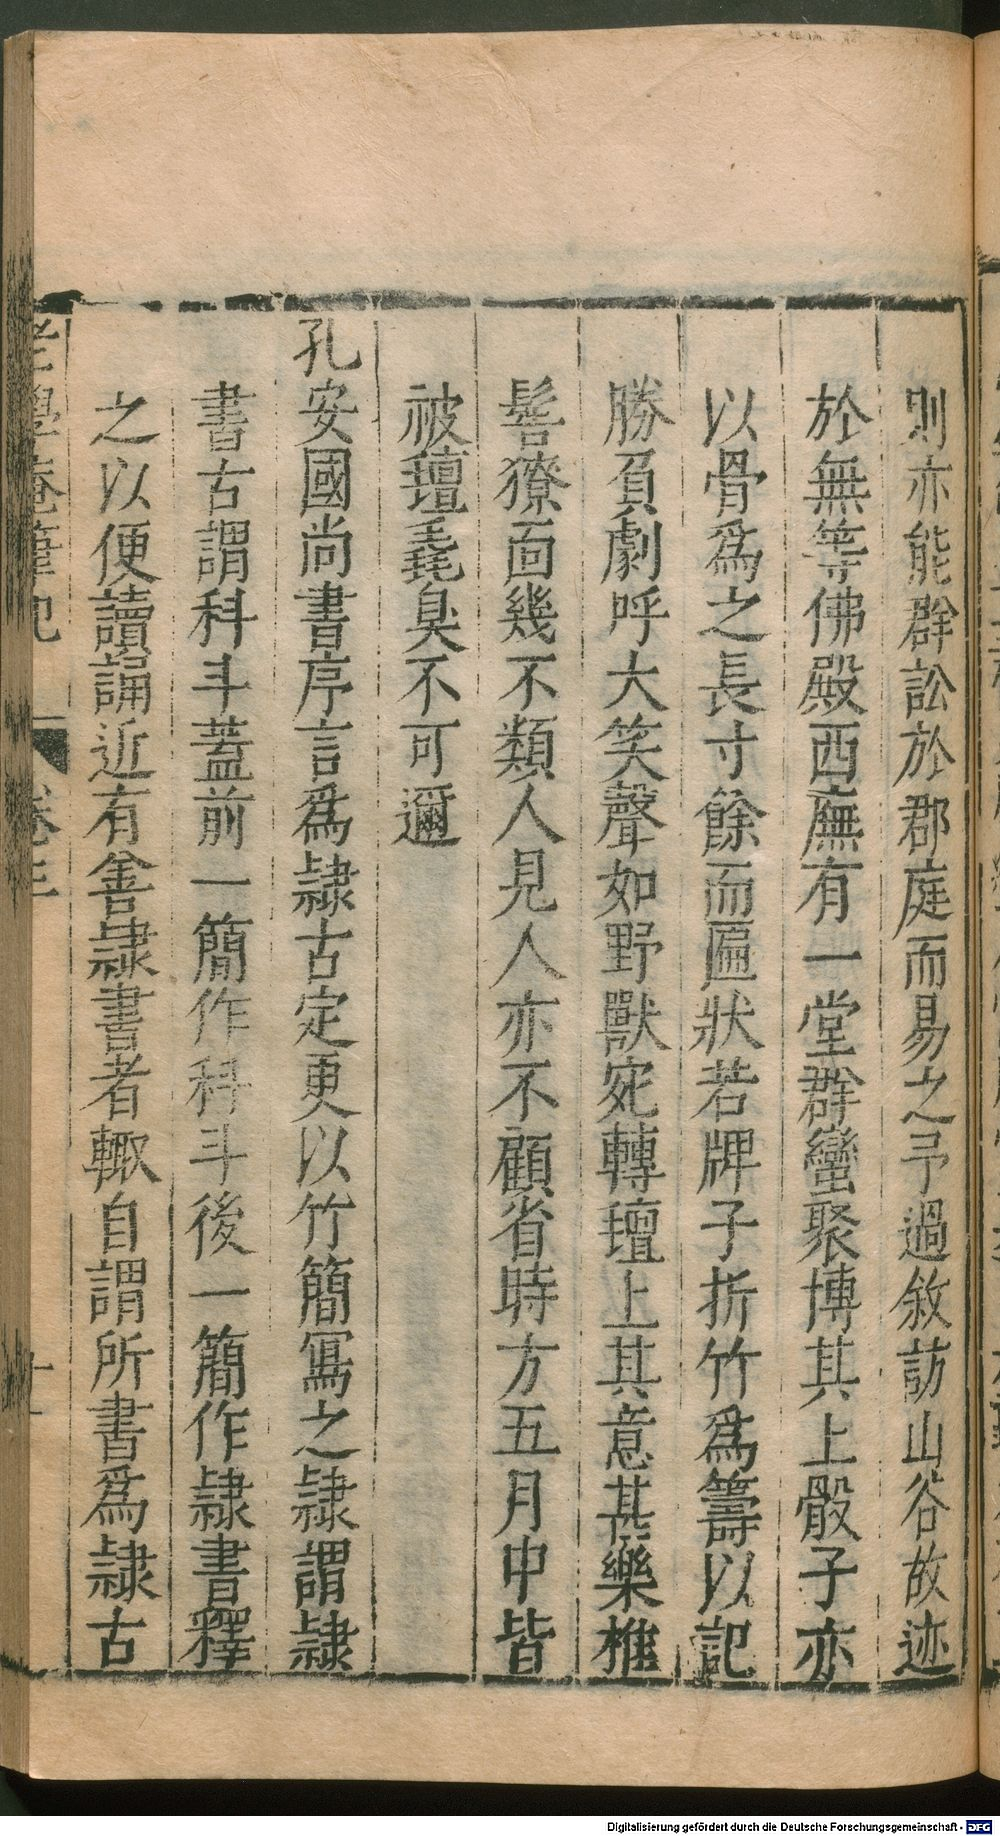 則亦能群訟於郡庭而易之予過敘訪山谷故迹
於無等佛殿西廡有一堂群蠻聚博其上骰子亦
以骨爲之長寸餘而匾狀若牌子折竹爲籌以記
勝負劇呼大笑聲如野獸宛轉氊上其意甚樂椎
髻獠面幾不類人見人亦不顧省時方五月中皆
被氊毳臭不可邇
孔安國尚書序言爲隸古定更以竹簡寫之隸謂隸
書古謂科斗蓋前一簡作科斗後一簡作隸書釋
之以便讀誦近有善隸書者輙自謂所書爲隸古
老學庵筆記 卷三 十一
Digitalisierung gefördert durch die Deutsche Forschungsgemeinschaft - DFG